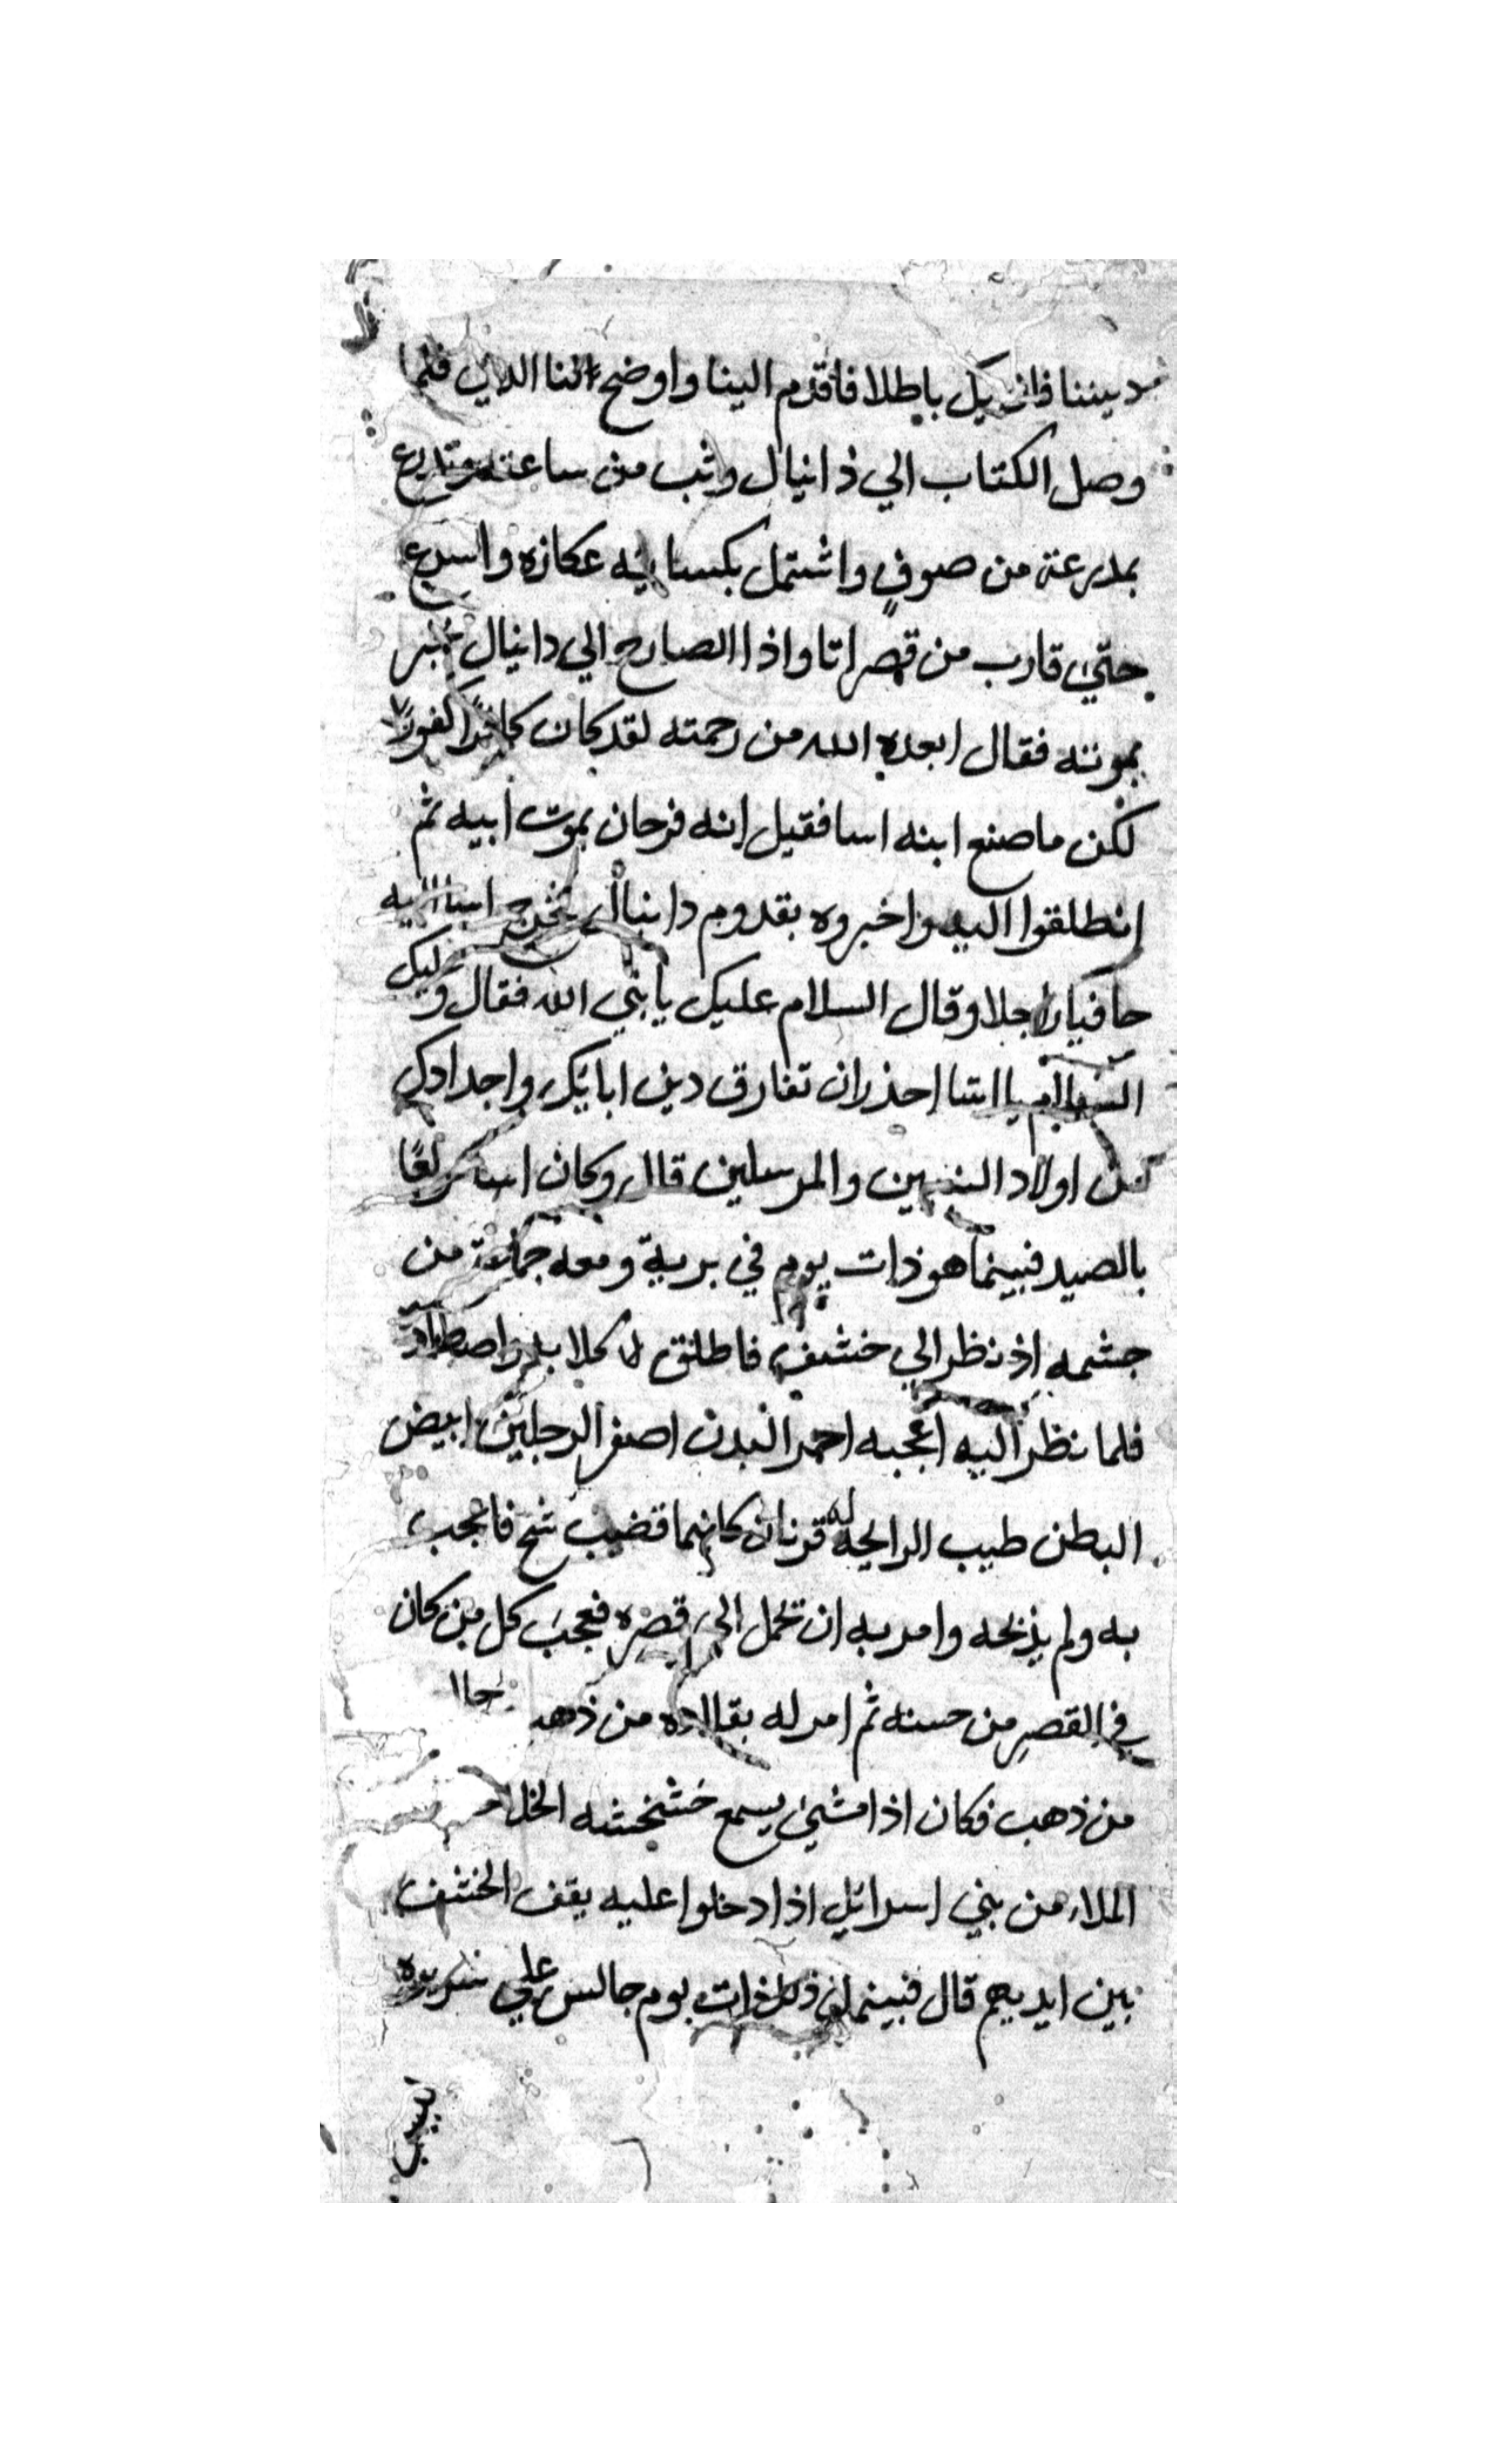 ديننا فان يك باطلا فاقدم الينا واوضح لنا الذي فلما
وصل الكتاب الي ذانيال وثب من ساعته وتدرع
بمدرعة من صوف واشتمل بكسا عكازه واسرع
حتي قارب من قصر اتا واذا الصارخ الي دانيال يخبر
بموته فقال ابعده الله من رحمته لقد كان كافرا كفورا
لكن ما صنع ابنه اسا فقيل انه فرحان بموت ابيه ثم
انطلقوا اليه واخبروه بقدوم دانيال فخرج اسا اليه
حافيا راجلا وقال السلام عليك يا بني الله فقال وعليك
السلام يا اسا احذر ان تفارق دين ابائك واجدادك
من اولاد النبيين والمرسلين قال وكان اسا مولعا
بالصيد فبينما هو ذات يوم في برية ومعه جماعة من
حشمه اذ نظر الي خشف فاطلق كلابه واصطاده
فلما نظر اليه اعجبه احمر البدن اصفر الرجلين ابيض
البطن طيب الرايحه له قرنان كانهما قضيب فاعجب
به ولم يذبحه وامر به ان تحمل الي قصره فعجب كل من كان
في القصر من حسنه ثم امر له بقلاده من ذهب
من ذهب فكان اذا مشي يسمع خشخشه
الملاء من بني اسرائل اذا دخلوا عليه يقف الخشف
بين ايديهم قال فبينما ذات يوم جالس علي سريره